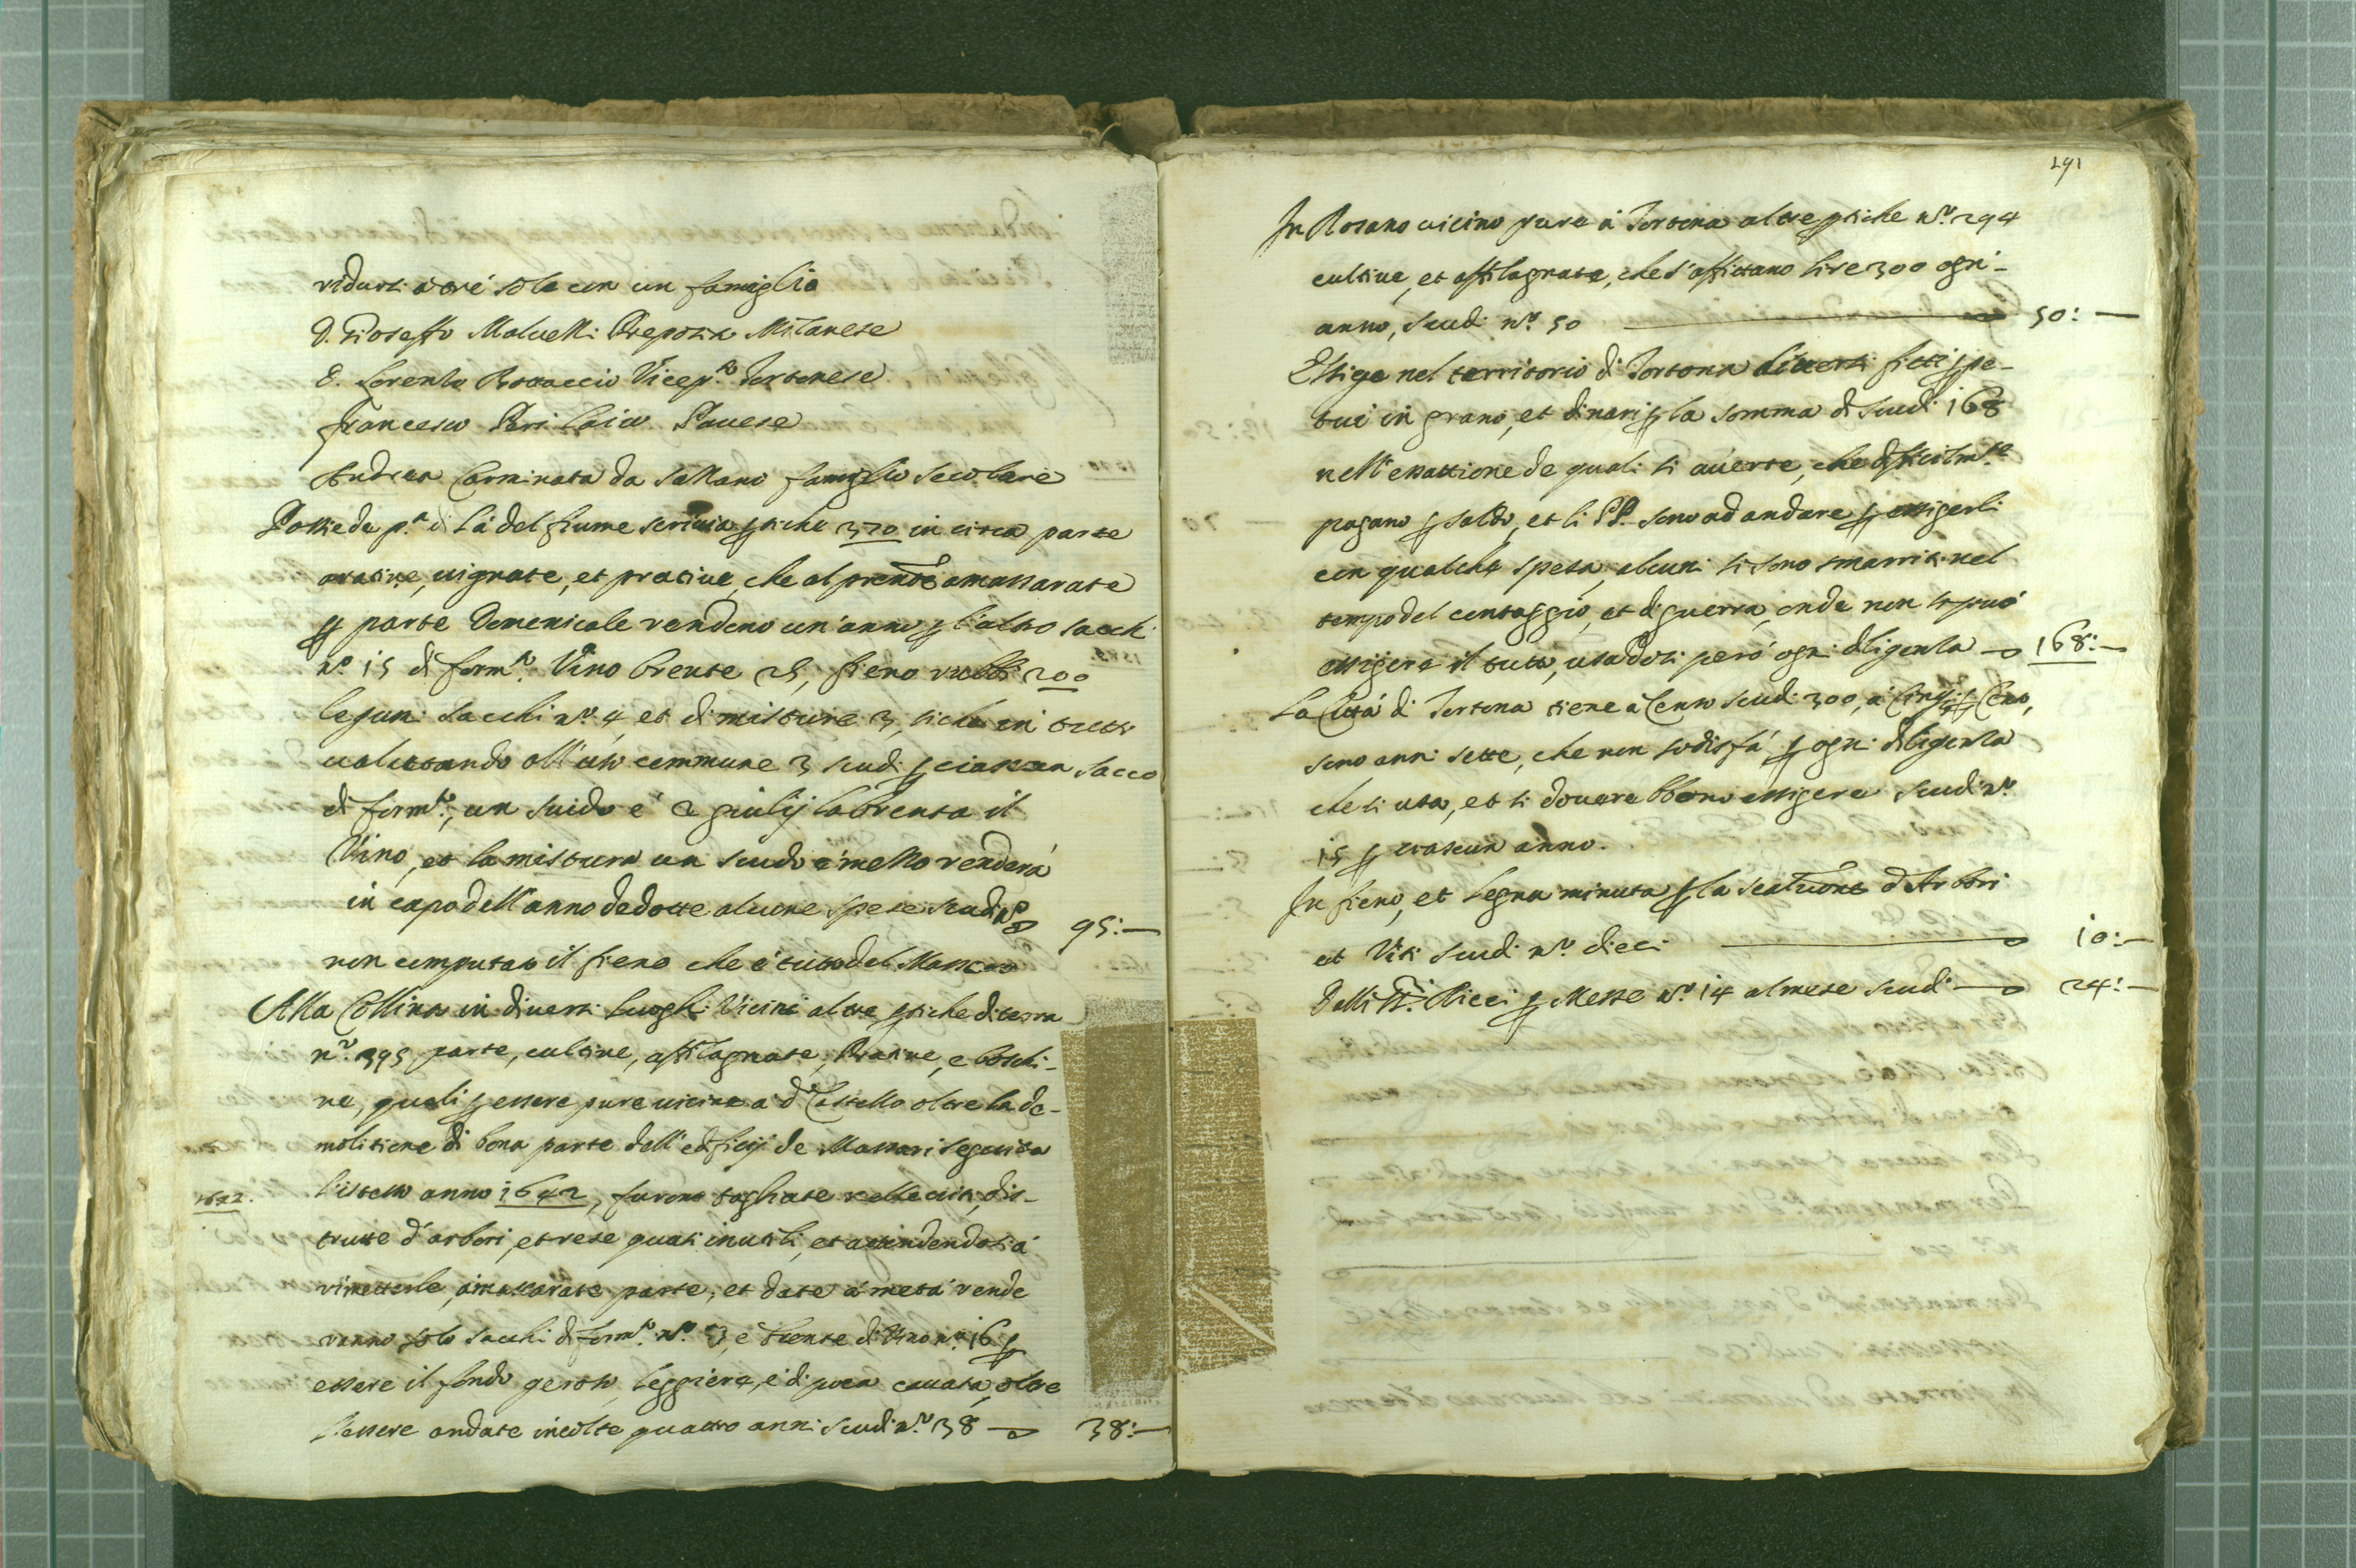 ridursi a trè sole con un famiglio
D. Gioseffo Maluelli Preposto Milanese
D. Lorenzo Bottaccio Vicep.to Tortonese
Francesco Laico Pauese
Andrea Carminata da famiglio secolare
Possiede p.a di là del fiume scriuia ꝑtiche 370 in circa parte
aratiue, uignate, et pratiue, che al prente amassarate
ꝑ parte Domenicale rendono un'anno ꝑ l'altro sacchi
n.o 15 di form.to Vino brente 25, fieno rubbi 200
legumi sacchi n.o 4, et di misture 3, siche in tutto
ualutando all'uso commune 3 scudi ꝑ ciascun sacco
di form.to, un scudo e 2 giulij la brenta il
Vino, et la mistura un scudo e mezzo renderà
in capo dell'anno dedotte alcune spese scudi n.o 95:—
non computato il fieno che è tutto del Massaro
Alla Collina in diuersi luoghi Vicini altre ꝑtiche di terra
n.o 395 parte, cultiue, affilagnate, Pratiue, e boschi-
ue, quali ꝑ essere pure uicine a d.o Castello oltre la de-
molitione di bona parte dell'edificij de Massari seguita
1642. l'istesso anno 1642, furono tagliate nelle uiti, dis-
trutte d'arbori, et rese quasi inutili, et attendendosi à
rimetterle, amassarate parte, et date à metà rende
ranno solo sacchi di form.to n.o 3, e brente di Vino n.o 16 ꝑ
essere il fondo geroso, leggiero, e di poca cauata, oltre
l'essere andate incolte quattro anni scudi n.o 38 — 38:—
191
In Rosano uicino pure à Tortona altre ꝑtiche n.o 294
cultiue, et affilagnate, che s'affittano lire 300 ogni
anno, scudi n.o 50 — 50:—
Essige nel territorio di Tortona diuersi fitti ꝑpe-
tui in grano, et dinari ꝑ la somma di scudi 168
nell'essattione de quali si auerte, che difficilm.te
pagano ꝑ saldo, et li PP. sono ad andare ꝑ essigerli
con qualche spesa, alcuni si sono smarriti nel
tempo del contaggio, et di guerra, onde non si può
essigere il tutto, usadosi però ogni diligenza — 168:—
La Città di Tortona tiene à Censo scudi 300, à Cinq; ꝑ Cento,
sono anni sette, che non sodisfà ꝑ ogni diligenza
che si usa, et si douerebbono essigere scudi n.o
15 ꝑ ciascun anno.
In fieno, et legna minuta ꝑ la d'Arbori
et Viti scudi n.o dieci — 10:—
Dalli SS.ri Ricci ꝑ Messe n.o 14 al mese scudi — 24:—